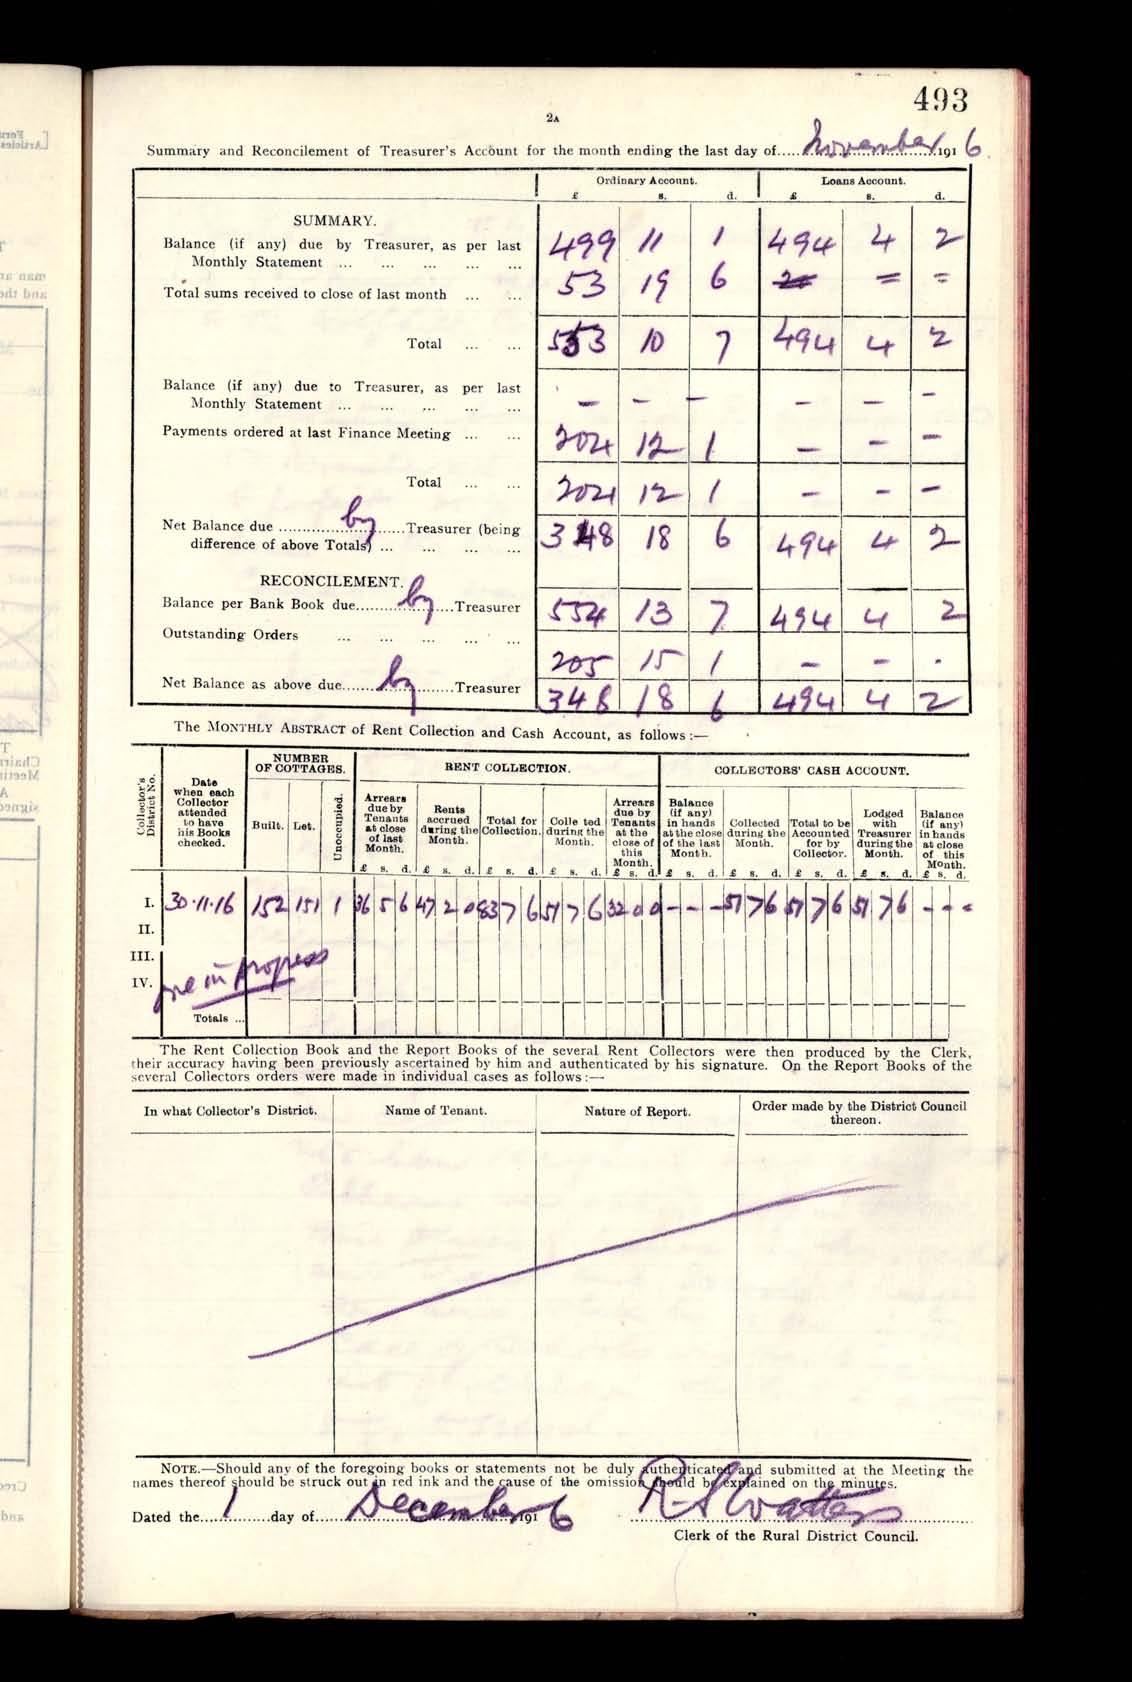 493
2A
Summary and Reconcilement of Treasurer's Account for the month ending the last day of..... November 191 6
Ordinary Account. Loans Account.
£ s. d. £ s. d.
SUMMARY.
Balance (if any) due by Treasurer, as per last
Monthly Statement ... ... ... ... ... 499 11 1 494 4 2
Total sums received to close of last month ... ... 53 19 6 = =
Total ... ... 553 10 7 494 4 2
Balance (if any) due to Treasurer, as per last
Monthly Statement ... ... ... ... ... – – – – – –
Payments ordered at last Finance Meeting ... ... 204 12 1 – – –
Total ... ... 204 12 1 – – –
Net Balance due ..... by .....Treasurer (being
difference of above Totals) ... ... ... ... 348 18 6 494 4 2
RECONCILEMENT.
Balance per Bank Book due..... by ....Treasurer 554 13 7 494 4 2
Outstanding Orders ... ... ... ... ... 205 15 1 – – -
Net Balance as above due..... by .....Treasurer 348 18 6 494 4 2
The MONTHLY ABSTRACT of Rent Collection and Cash Account, as follows :—
Collector's District No.
Date when each Collector attended to have his Books checked.
NUMBER OF COTTAGES.
Built. Let. Unoccupied.
RENT COLLECTION.
Arrears due by Tenants at close of last Month.
Rents accrued during the Month.
Total for Collection.
Colle ted during the Month.
Arrears due by Tenants at the close of this Month.
COLLECTORS' CASH ACCOUNT.
Balance (if any) in hands at the close of the last Month.
Collected during the Month.
Total to be Accounted for by Collector.
Lodged with Treasurer during the Month.
Balance (if any) in hands at close of this Month.
£ s. d. £ s. d. £ s. d. £ s. d. £ s. d. £ s. d. £ s. d. £ s. d. £ s. d. £ s. d.
I. 30·11·16 152 151 1 36 5 6 47 2 0 83 7 6 51 7 6 32 0 0 – – – 51 7 6 51 7 6 51 7 6 – – –
II.
III.
IV. in progress
Totals ...
The Rent Collection Book and the Report Books of the several Rent Collectors were then produced by the Clerk,
their accuracy having been previously ascertained by him and authenticated by his signature. On the Report Books of the
several Collectors orders were made in individual cases as follows :—
In what Collector's District. Name of Tenant. Nature of Report. Order made by the District Council thereon.
NOTE.—Should any of the foregoing books or statements not be duly authenticated and submitted at the Meeting the
names thereof should be struck out in red ink and the cause of the omission should be explained on the minutes.
Dated the... 1 .....day of..... December 191 6 R S Watters
Clerk of the Rural District Council.